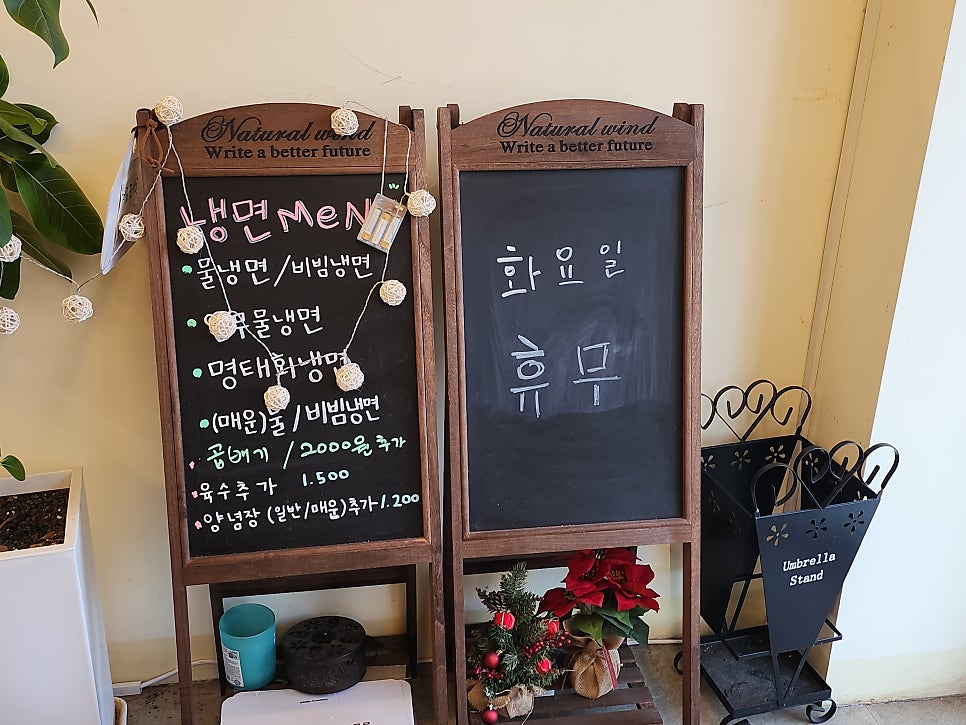 Natural wind
Write a better future
냉면 MeN
물냉면 / 비빔냉면
물냉면
명태회냉면
(매운)물 / 비빔냉면
곱배기 / 2000원 추가
육수추가 1.500
양념장 (일반/매운)추가 1.200
Natural wind
Write a better future
화요일
휴무
Umbrella
Stand